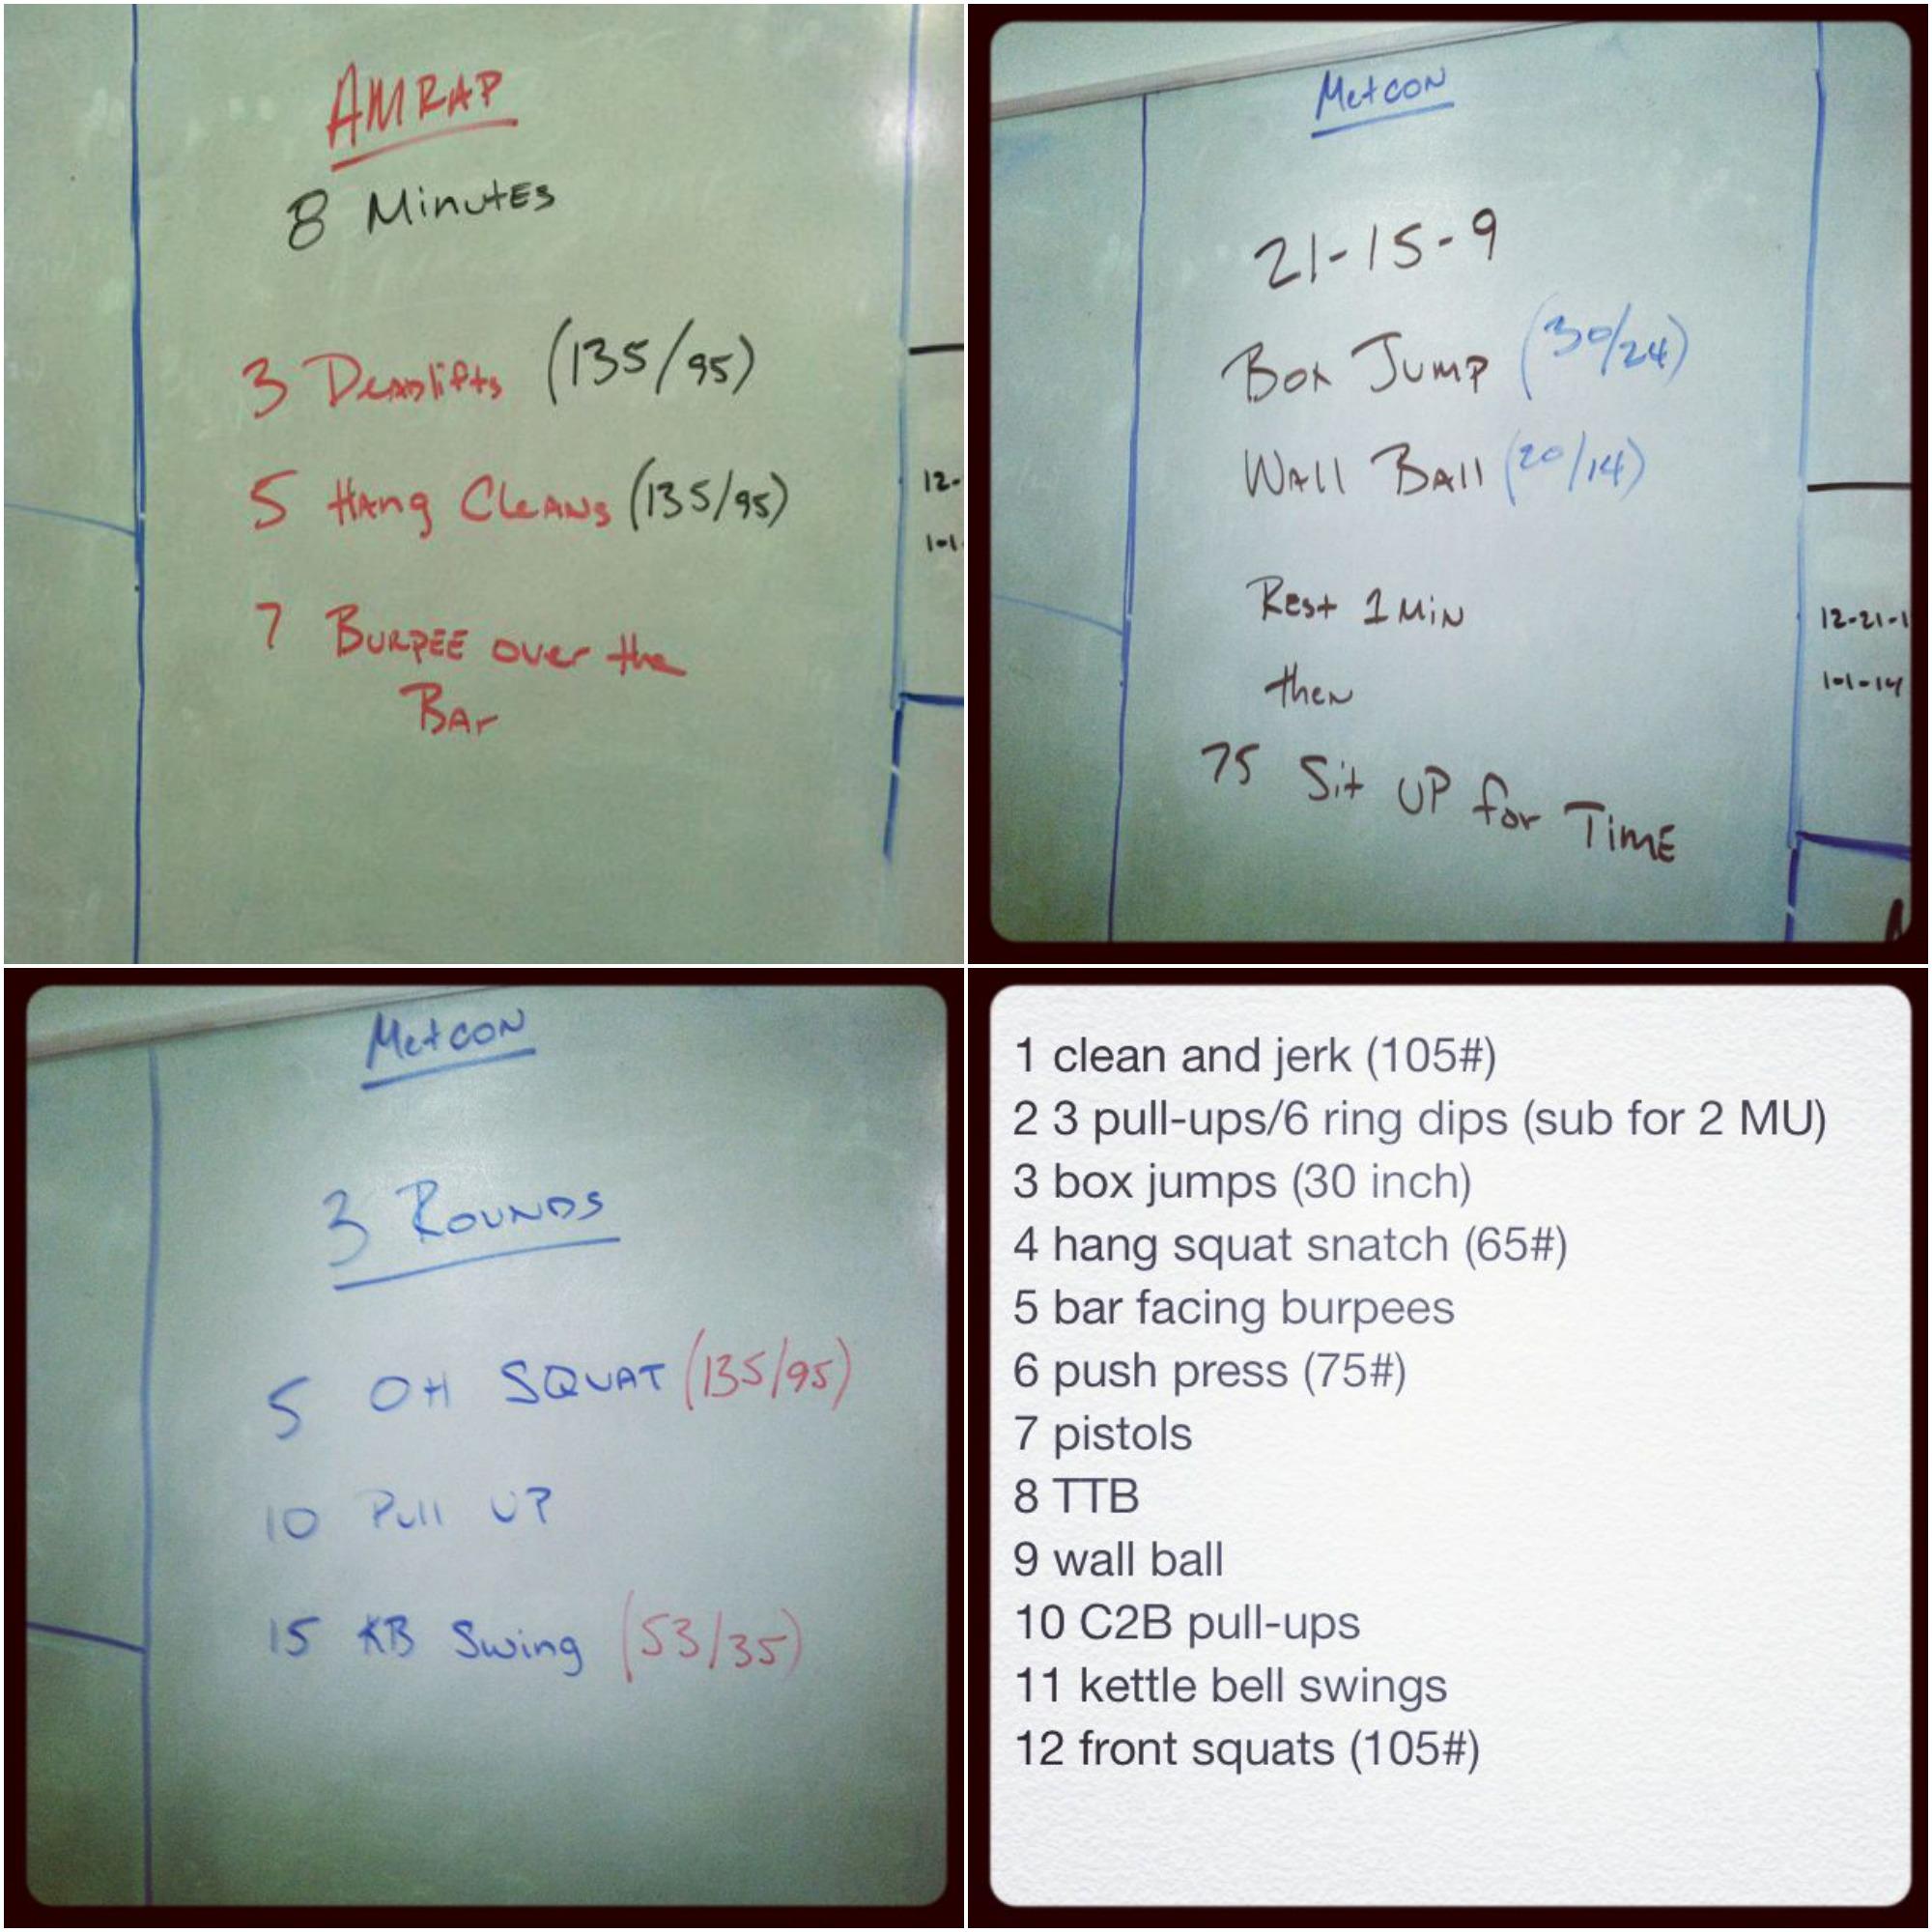 AMRAP
8 Minutes
3 Deadlifts (135/95)
5 Hang Cleans (135/95)
7 Burpee over the
Bar
12-
1-1
Metcon
21-15-9
Box Jump (30/24)
Wall Ball (20/14)
Rest 1 Min
then
75 Sit UP for Time
12-21-1
1-1-14
Metcon
3 Rounds
5 OH SQUAT (135/95)
10 Pull UP
15 KB Swing (53/35)
1 clean and jerk (105#)
2 3 pull-ups/6 ring dips (sub for 2 MU)
3 box jumps (30 inch)
4 hang squat snatch (65#)
5 bar facing burpees
6 push press (75#)
7 pistols
8 TTB
9 wall ball
10 C2B pull-ups
11 kettle bell swings
12 front squats (105#)